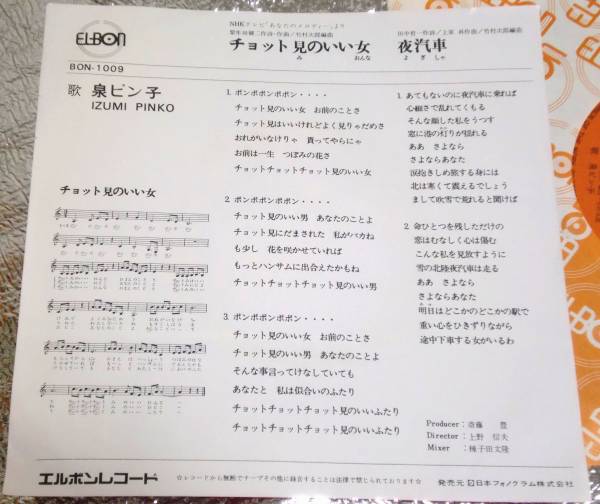 EL-BON
BON-1009
歌 泉ピン子
IZUMI PINKO
NHKテレビ「あなたのメロディー」より
チョット見のいい女
み おんな
夜汽車
よ ぎ しゃ
チョット見のいい女
1. ボンボンボンボン・・・・
チョット見のいい女 お前のことさ
チョット見はいいけれどよく見りゃだめさ
おれがいなけりゃ 貰ってやらにゃ
お前は一生 つぼみの花さ
チョットチョットチョット見のいい女
2. ボンボンボンボン・・・・
チョット見のいい男 あなたのことよ
チョット見にだまされた 私がバカね
も少し 花を咲かせていれば
もっとハンサムに出合えたかもね
チョットチョットチョット見のいい男
3. ボンボンボンボン・・・・
チョット見のいい女 お前のことさ
チョット見のいい男 あなたのことよ
そんな事言ってけなしていても
あなたと 私は似合いのふたり
チョットチョットチョット見のいいふたり
チョットチョットチョット見のいいふたり
1. あてもないのに夜汽車に乗れば
心細さで乱れてくもる
そんな顔した私をうつす
窓に港の灯りが揺れる
ああ さよなら
さよならあなた
涙抱きしめ旅する身には
北は寒くて震えるでしょう
まして吹雪で荒れると聞けば
2. 命ひとつを残しただけの
恋はむなしく心は傷む
こんな私を見放すように
雪の北陸夜汽車は走る
ああ さよなら
さよならあなた
明日はどこかのどこかの駅で
重い心をひきずりながら
途中下車する女がいるわ
Producer : 斎藤 豊
Director : 上野 信夫
Mixer : 椅子田文隆
エルボンレコード
☆レコードから無断でテープその他に録音することは法律で禁じられております☆
発売元 日本フォノグラム株式会社